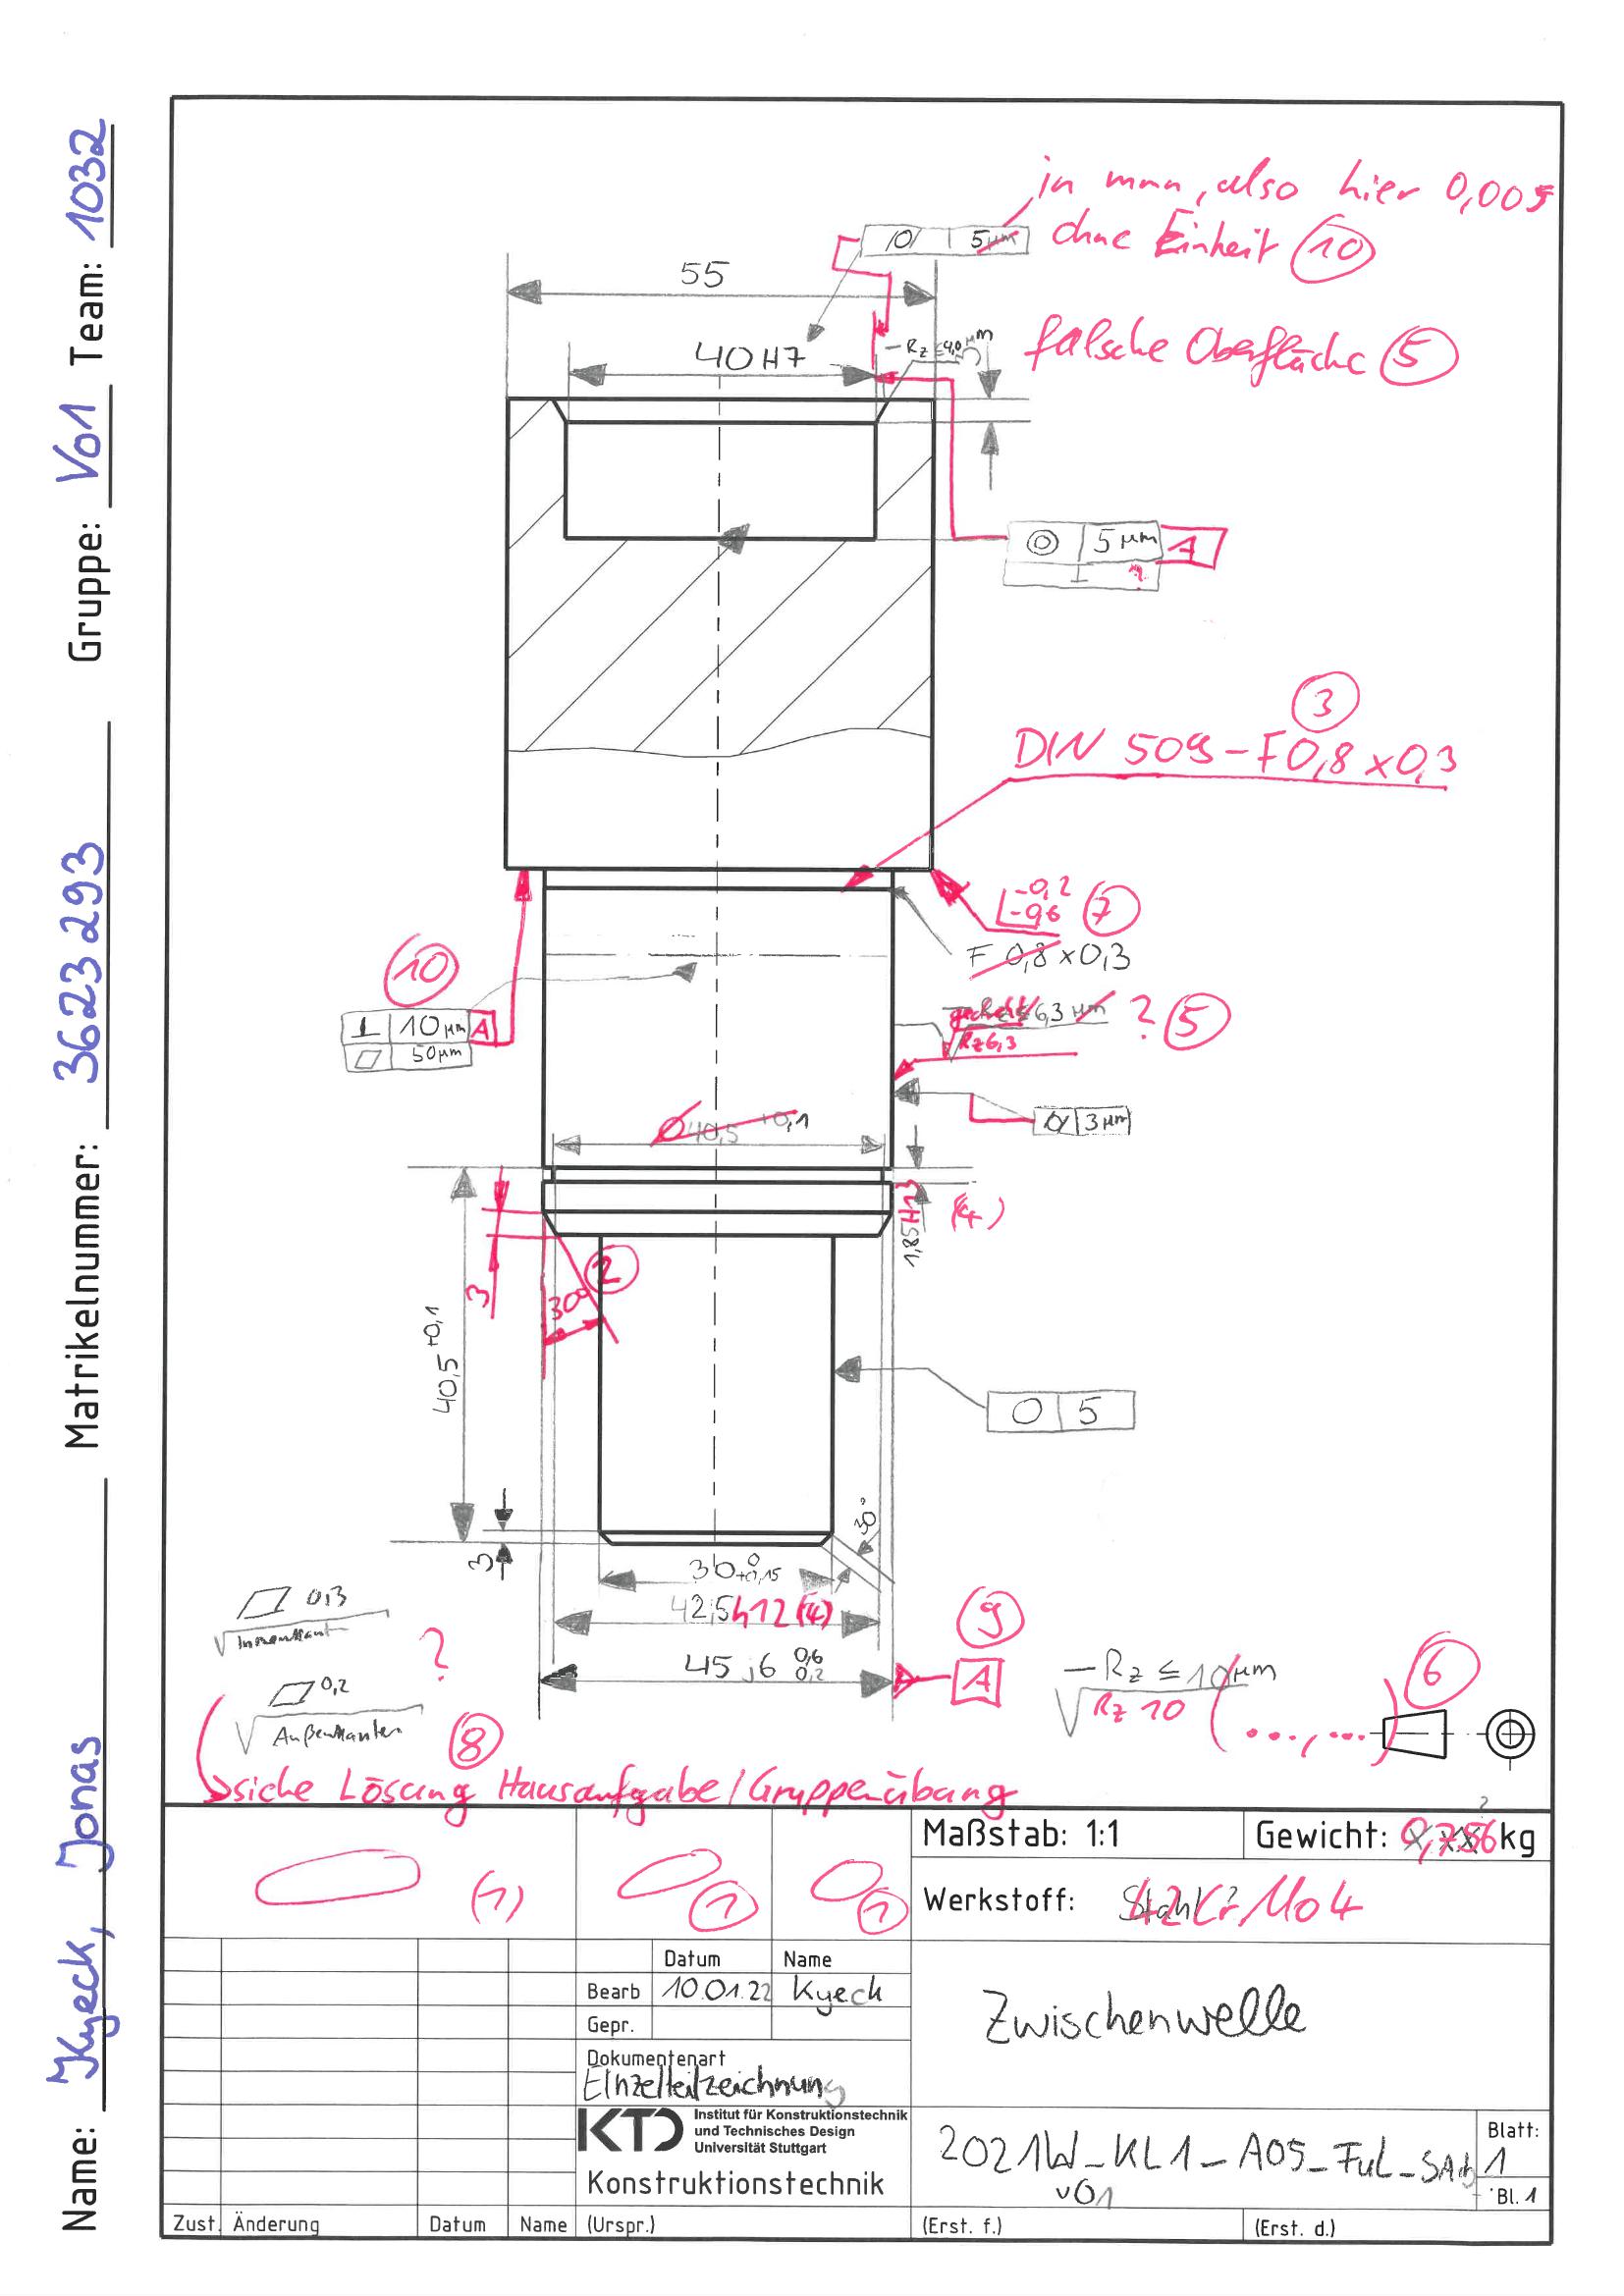 Name: Kyeck, Jonas Matrikelnummer: 3623293 Gruppe: Vo1 Team: 1032
in mm, also hier 0,005
ohne Einheit 10
5 µm
55
falsche Oberfläche 5
40 H7
5 µm A
3
DIN 509 – F 0,8 x 0,3
-0,2
-0,6
7
F 0,8 x 0,3
10
10 µm A
50 µm
6,3 µm ? 5
Rz 6,3
3 µm
Ø 40,5 +0,1
1,85 H13 (4)
2
3
30°
40,5 +0,1
5
3
30°
30
42,5 h12 (4)
45 j6 0,6 0,2
9
A
0,3
Innenkant
?
0,2
Außenkanten
8
– Rz ≤ 10 µm
Rz 10 ( ..., ... )
6
siehe Lösung Hausaufgabe / Gruppenübung
(1) 1 1
Maßstab: 1:1 Gewicht: 0,756 kg
?
Werkstoff: 42CrMo4
Datum Name
Bearb 10.01.22 Kyeck
Gepr.
Zwischenwelle
Dokumentenart
Einzelteilzeichnung
KTD Institut für Konstruktionstechnik
und Technisches Design
Universität Stuttgart
Konstruktionstechnik
2021W_KL1_A05_FuL_SAb
v01
Blatt:
1
Bl. 1
Zust. Änderung Datum Name (Urspr.) (Erst. f.) (Erst. d.)